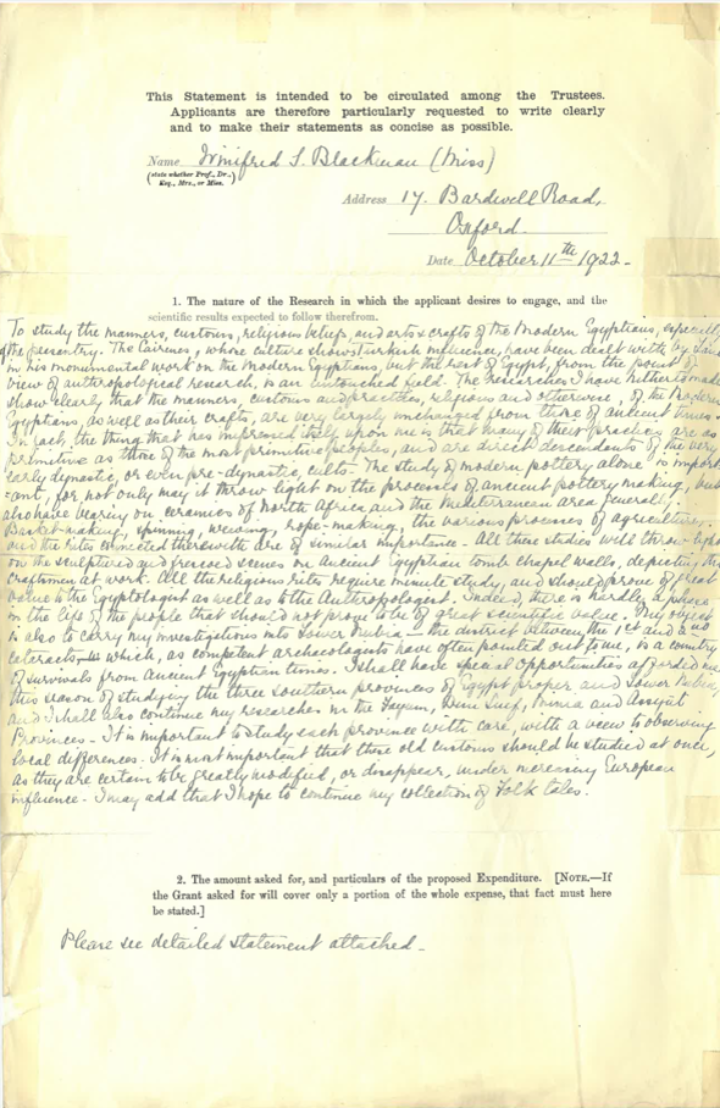 This Statement is intended to be circulated among the Trustees.
Applicants are therefore particularly requested to write clearly
and to make their statements as concise as possible.
Name Winifred S. Blackman (Miss)
(state whether Prof., Dr.,
Esq., Mrs., or Miss.)
Address 17. Bardwell Road,
Oxford.
Date October 11th 1922.
1. The nature of the Research in which the applicant desires to engage, and the
scientific results expected to follow therefrom.
To study the manners, customs, religious beliefs, and arts & crafts of the Modern Egyptians, especially
of the peasantry. The Cairenes, whose culture shows Turkish influence, have been dealt with by Lane
in his monumental work on the Modern Egyptians, but the rest of Egypt, from the point of
view of anthropological research, is an untouched field. The researches I have hitherto made
show clearly that the manners, customs and practices, religious and otherwise, of the Modern
Egyptians, as well as their crafts, are very largely unchanged from those of ancient times.
In fact, the thing that has impressed itself upon me is that many of their practices are as
primitive as those of the most primitive peoples, and are direct descendants of the very
early dynastic, or even pre-dynastic, cults. The study of modern pottery alone is import-
=ant, for, not only may it throw light on the processes of ancient pottery making, but
also have bearing on ceramics of North Africa and the Mediterranean area generally.
Basket-making, spinning, weaving, rope-making, the various processes of agriculture,
and the rites connected therewith are of similar importance. All these studies will throw light
on the sculptured and frescoed scenes on Ancient Egyptian tomb chapel walls, depicting the
craftsmen at work. All the religious rites require minute study, and should prove of great
value to the Egyptologist as well as to the Anthropologist. Indeed, there is hardly a phase
in the life of the people that should not prove to be of great scientific value. My object
is also to carry my investigations into Lower Nubia — the district between the 1st and 2nd
cataracts, which, as competent archaeologists have often pointed out to me, is a country
of survivals from Ancient Egyptian times. I shall have special opportunities afforded me
this season of studying the three southern provinces of Egypt proper and Lower Nubia,
and I shall also continue my researches in the Fayum, Beni Suef, Minia and Assyut
Provinces. It is important to study each province with care, with a view to observing
local differences. It is most important that these old customs should be studied at once,
as they are certain to be greatly modified, or disappear, under increasing European
influence. I may add that I hope to continue my collection of Folk tales.
2. The amount asked for, and particulars of the proposed Expenditure. [NOTE.—If
the Grant asked for will cover only a portion of the whole expense, that fact must here
be stated.]
Please see detailed statement attached.